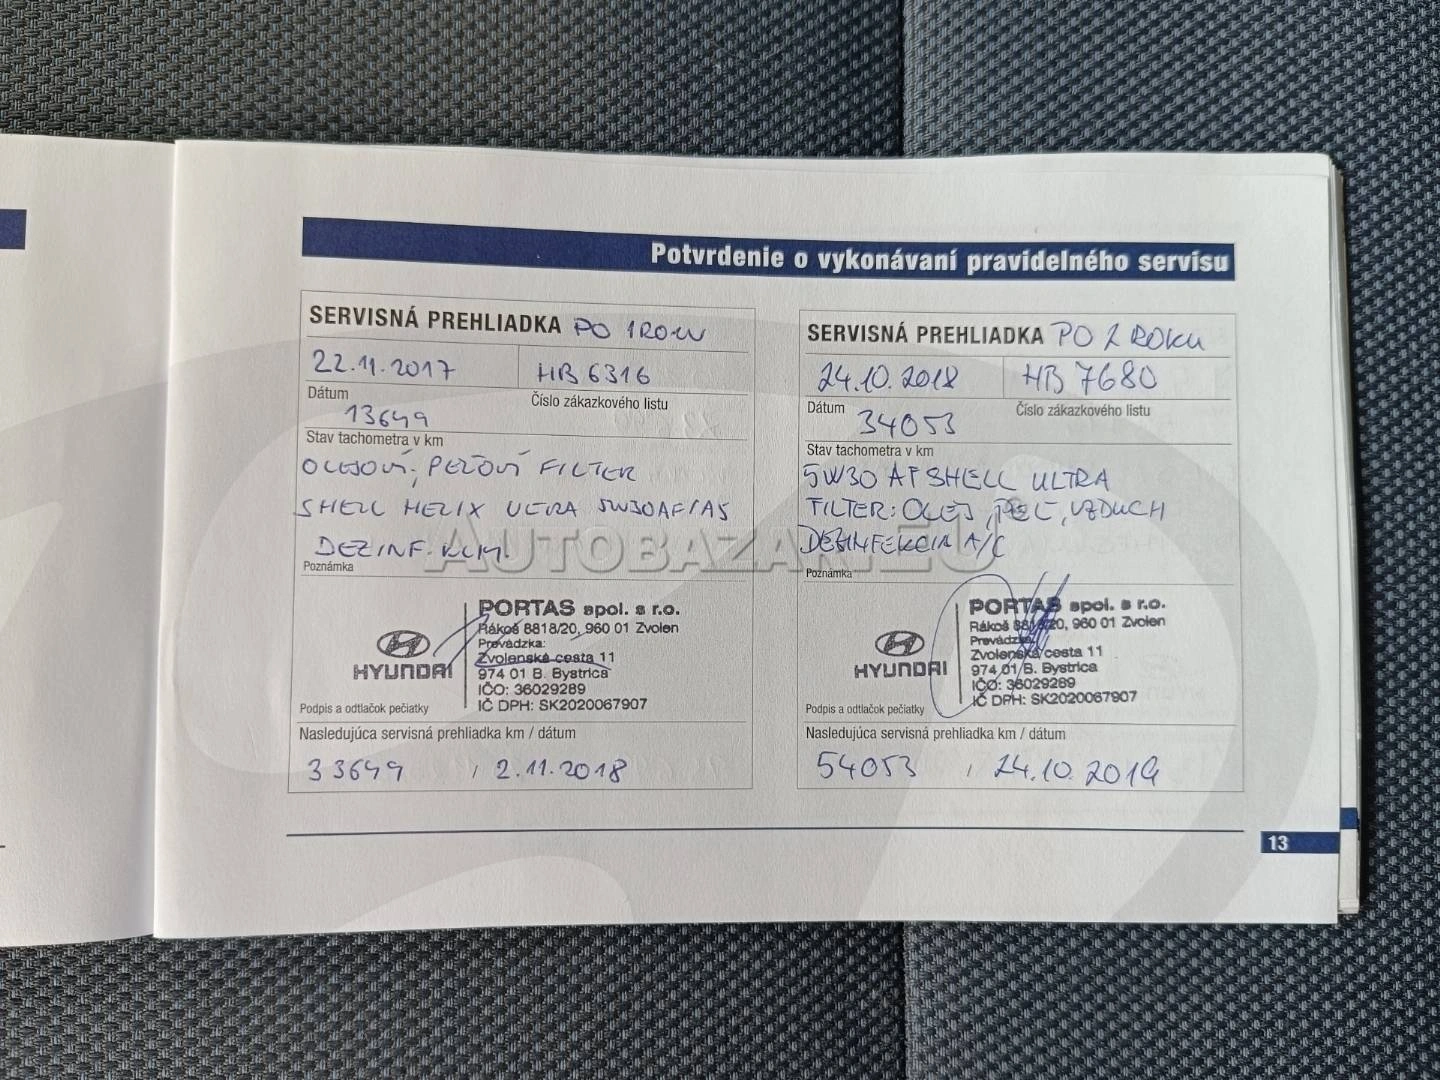 Potvrdenie o vykonávaní pravidelného servisu
SERVISNÁ PREHLIADKA PO 1 ROKU
22.11.2017 HB 6316
Dátum Číslo zákazkového listu
13649
Stav tachometra v km
OLEJOVÍ, PEĽOVÍ FILTER
SHELL HELIX ULTRA 5W30 AF/A5
DEZINF. KLIM.
Poznámka
PORTAS spol. s r.o.
Rákoš 8818/20, 960 01 Zvolen
Prevádzka:
Zvolenská cesta 11
974 01 B. Bystrica
IČO: 36029289
IČ DPH: SK2020067907
HYUNDAI
Podpis a odtlačok pečiatky
Nasledujúca servisná prehliadka km / dátum
33649 / 2.11.2018
SERVISNÁ PREHLIADKA PO 2 ROKU
24.10.2018 HB 7680
Dátum Číslo zákazkového listu
34053
Stav tachometra v km
5W30 AF SHELL ULTRA
FILTER: OLEJ, PEĽ, VZDUCH
DEZINFEKCIA A/C
Poznámka
PORTAS spol. s r.o.
Rákoš 8818/20, 960 01 Zvolen
Prevádzka:
Zvolenská cesta 11
974 01 B. Bystrica
IČO: 36029289
IČ DPH: SK2020067907
HYUNDAI
Podpis a odtlačok pečiatky
Nasledujúca servisná prehliadka km / dátum
54053 / 24.10.2019
13
AUTOBAZAR.EU